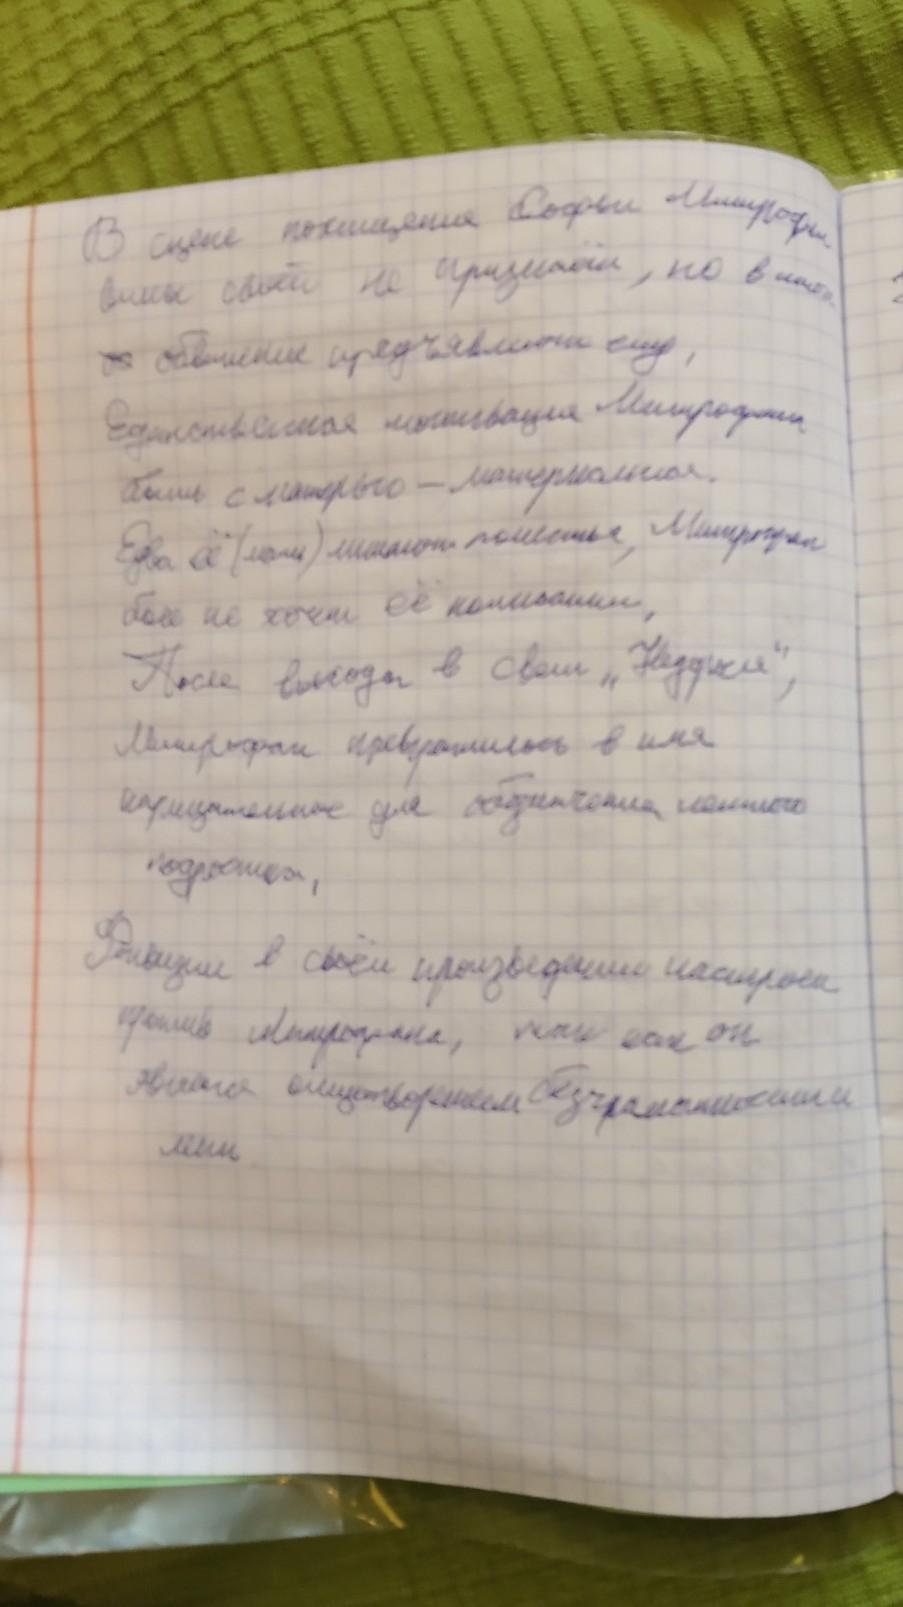 В сцене похищения Софьи Митрофан
вины своей не признаёт, но в
обвинение предъявляют ему,
Единственная мотивация Митрофана
быть с матерью — материальная.
Едва её (мать) лишают поместья, Митрофан
более не хочет её
После выхода в свет „Недоросля",
Митрофан превратилось в имя
нарицательное для обозначения ленивого
подростка,
Фонвизин в своём произведении настроен
против Митрофана, так как он
является олицетворением безграмотности и
лени